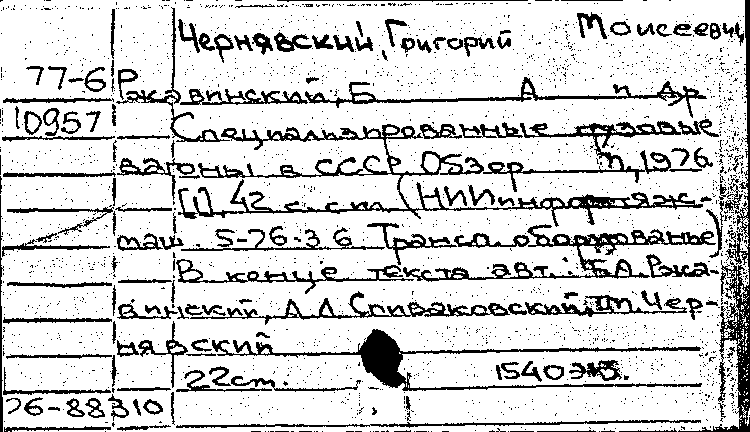 Чернявский, Григорий Моисеевич
77-6 Ржавинский, Б А и др
10957 Специализированные грузовые
вагоны в СССР. Обзор. М, 1976.
[1], 42 с. с ил (НИИинформтяж-
маш. 5-76-36 Трансп. оборудованье)
В конце текста авт.: Б.А. Ржа-
винский, Спиваковский, Чер-
нявский
22см. 1540экз.
76-88310